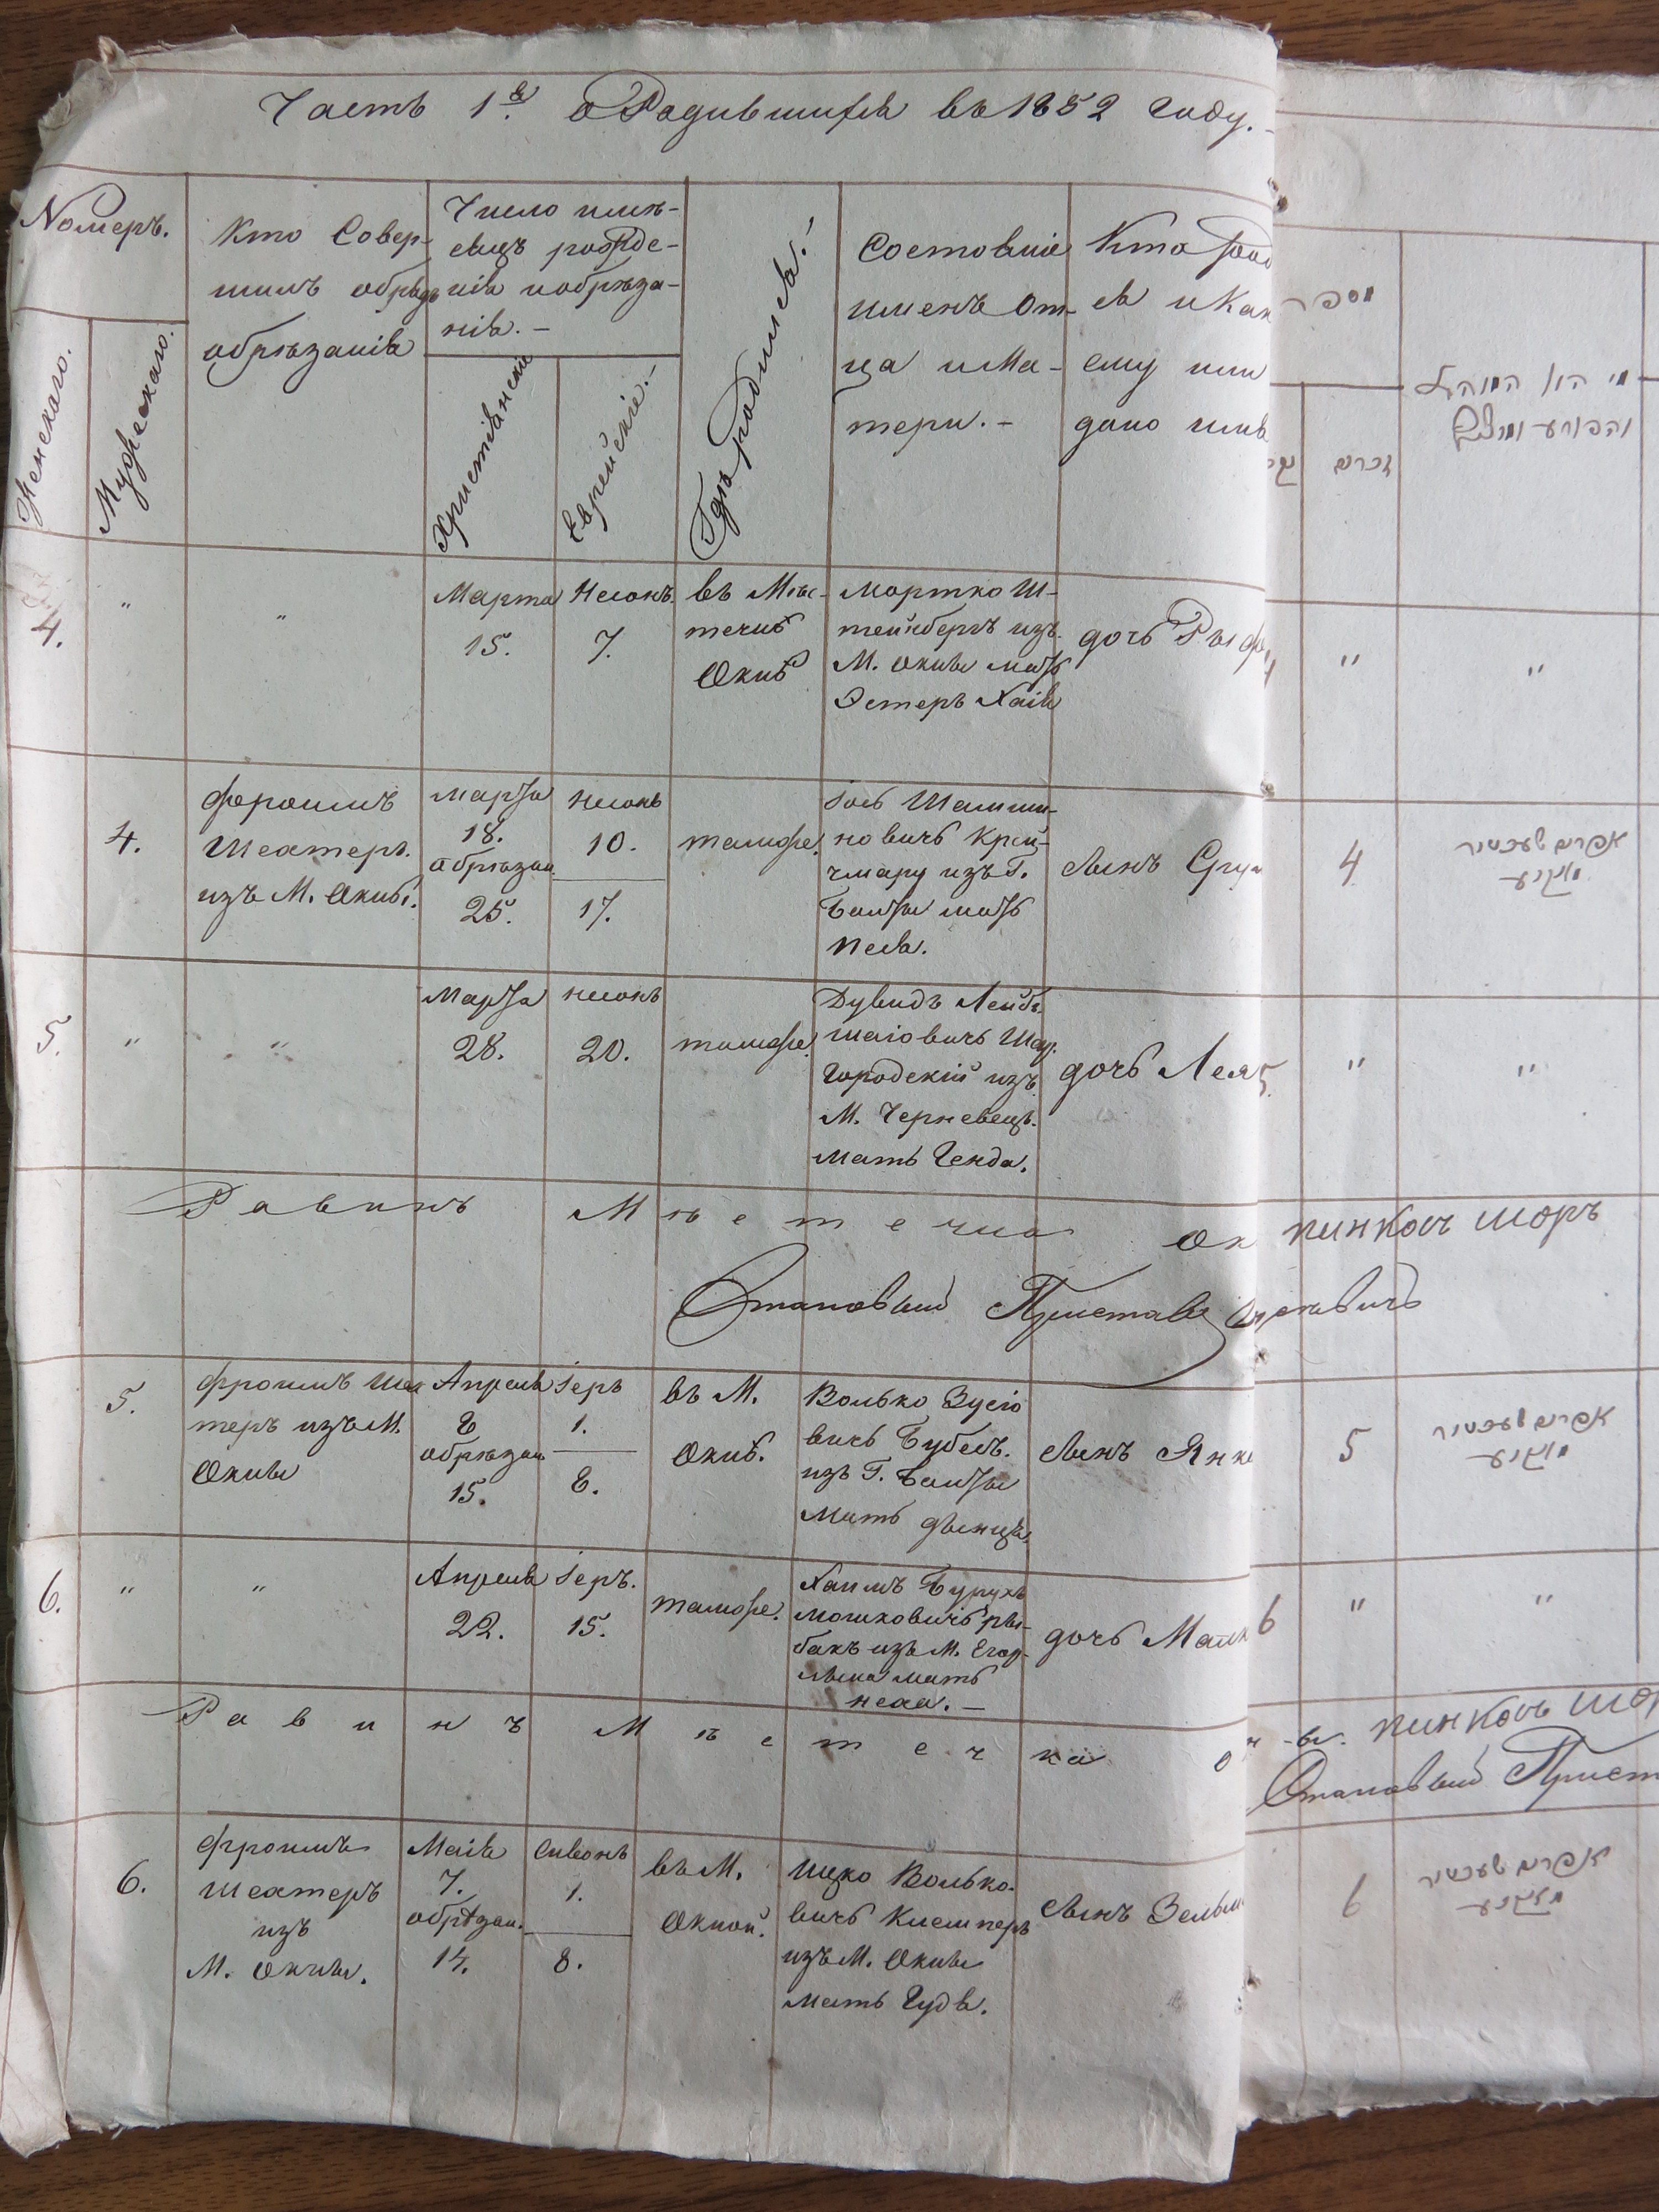 Часть 1я. о Родившихся въ 1852 году.
Номеръ.
Женскаго.
Мужескаго.
Кто Совер-
шилъ обрядъ
обрѣзанія
Число и мѣ-
сяцъ рожде-
нія и обрѣза-
нія. -
Христіянскій
Еврейскіе. -
Гдѣ родился!
Состояніе
именъ От-
ца и Ма-
тери. -
Кто род
ся и Как
ему имя
дано имя
מספר
זכרים
מי הוא המוהל
והפורע
4.
"
"
Марта
15.
Нисонъ.
7.
въ Мѣс-
течкѣ
Окнѣ
Мортко Ш-
тейнбергъ изъ
М. Окны мать
Эстеръ Хаія
дочь Рыф
"
"
4.
Фроимъ
Шехтеръ.
изъ М. Окнѣ.
Марта
18.
обрѣзан.
25.
Нисонъ
10.
17.
тамже.
Іось Шамши-
новичь Крей-
чмару изъ Г.
Балты мать
Песя.
сынъ Сру
4
אפרים שעכטיר
מאקניע
5.
"
"
Марта
28.
Нисонъ
20.
тамже.
Дувидъ Лейбъ.
Шаіовичь Шар.
городскій изъ
М. Черневецъ.
мать Генда.
дочь Лея
5.
"
"
Равинъ Мѣстечка Ок Пинкосъ Шоръ
Становый Приставъ
5.
Фроимъ Шех
теръ изъ М.
Окны
Апреля
8
обрѣзан
15.
Іеръ
1.
8.
въ М.
Окнѣ.
Волько Зусіо
вичь Бубесъ.
изъ Г. Балты
Мать Двейца.
сынъ Янк
5
אפרים שעכטיר
מאקניע
6.
"
"
Апреля
22.
Іеръ.
15.
тамже.
Хаимъ Бурухъ
Мошковичь ры-
бакъ изъ М. Егор-
лыка мать
Неха. -
дочь Малк
6
"
"
Равинъ Мѣстечка Ок-ны. Пинкосъ Шо
Становый Прист
6.
Фроимъ
Шехтеръ
изъ
М. Окны.
Маія
7.
обрѣзан.
14.
Сивонъ
1.
8.
въ М.
Окной.
Ицко Волько-
вичь Кисшперъ
изъ М. Окны
мать Гудя.
сынъ Зельм
6
אפרים שעכטיר
מאקניע